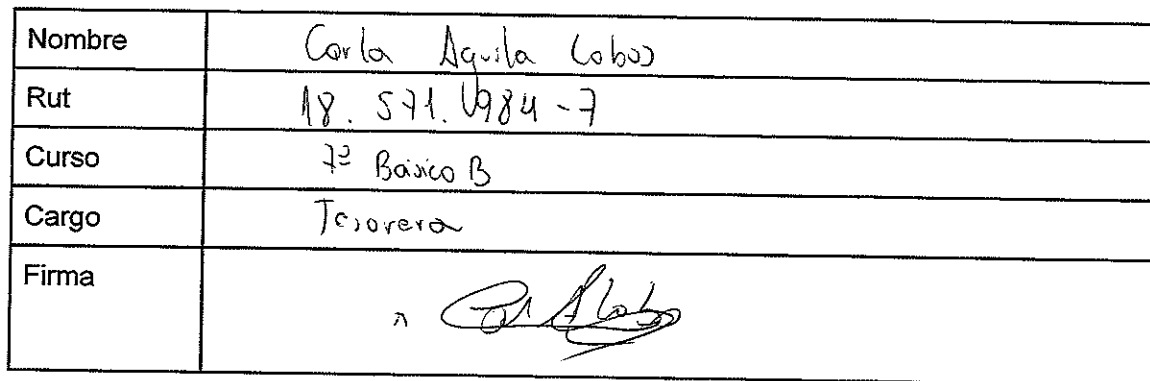 Nombre Carla Aguila Cobos
Rut 18.571.984-7
Curso 7º Básico B
Cargo Tesorera
Firma